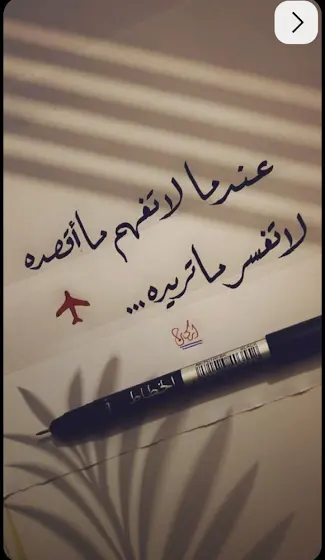 عندما لا تفهم ما أقصده
لا تفسر ما تريده...
الخطاط